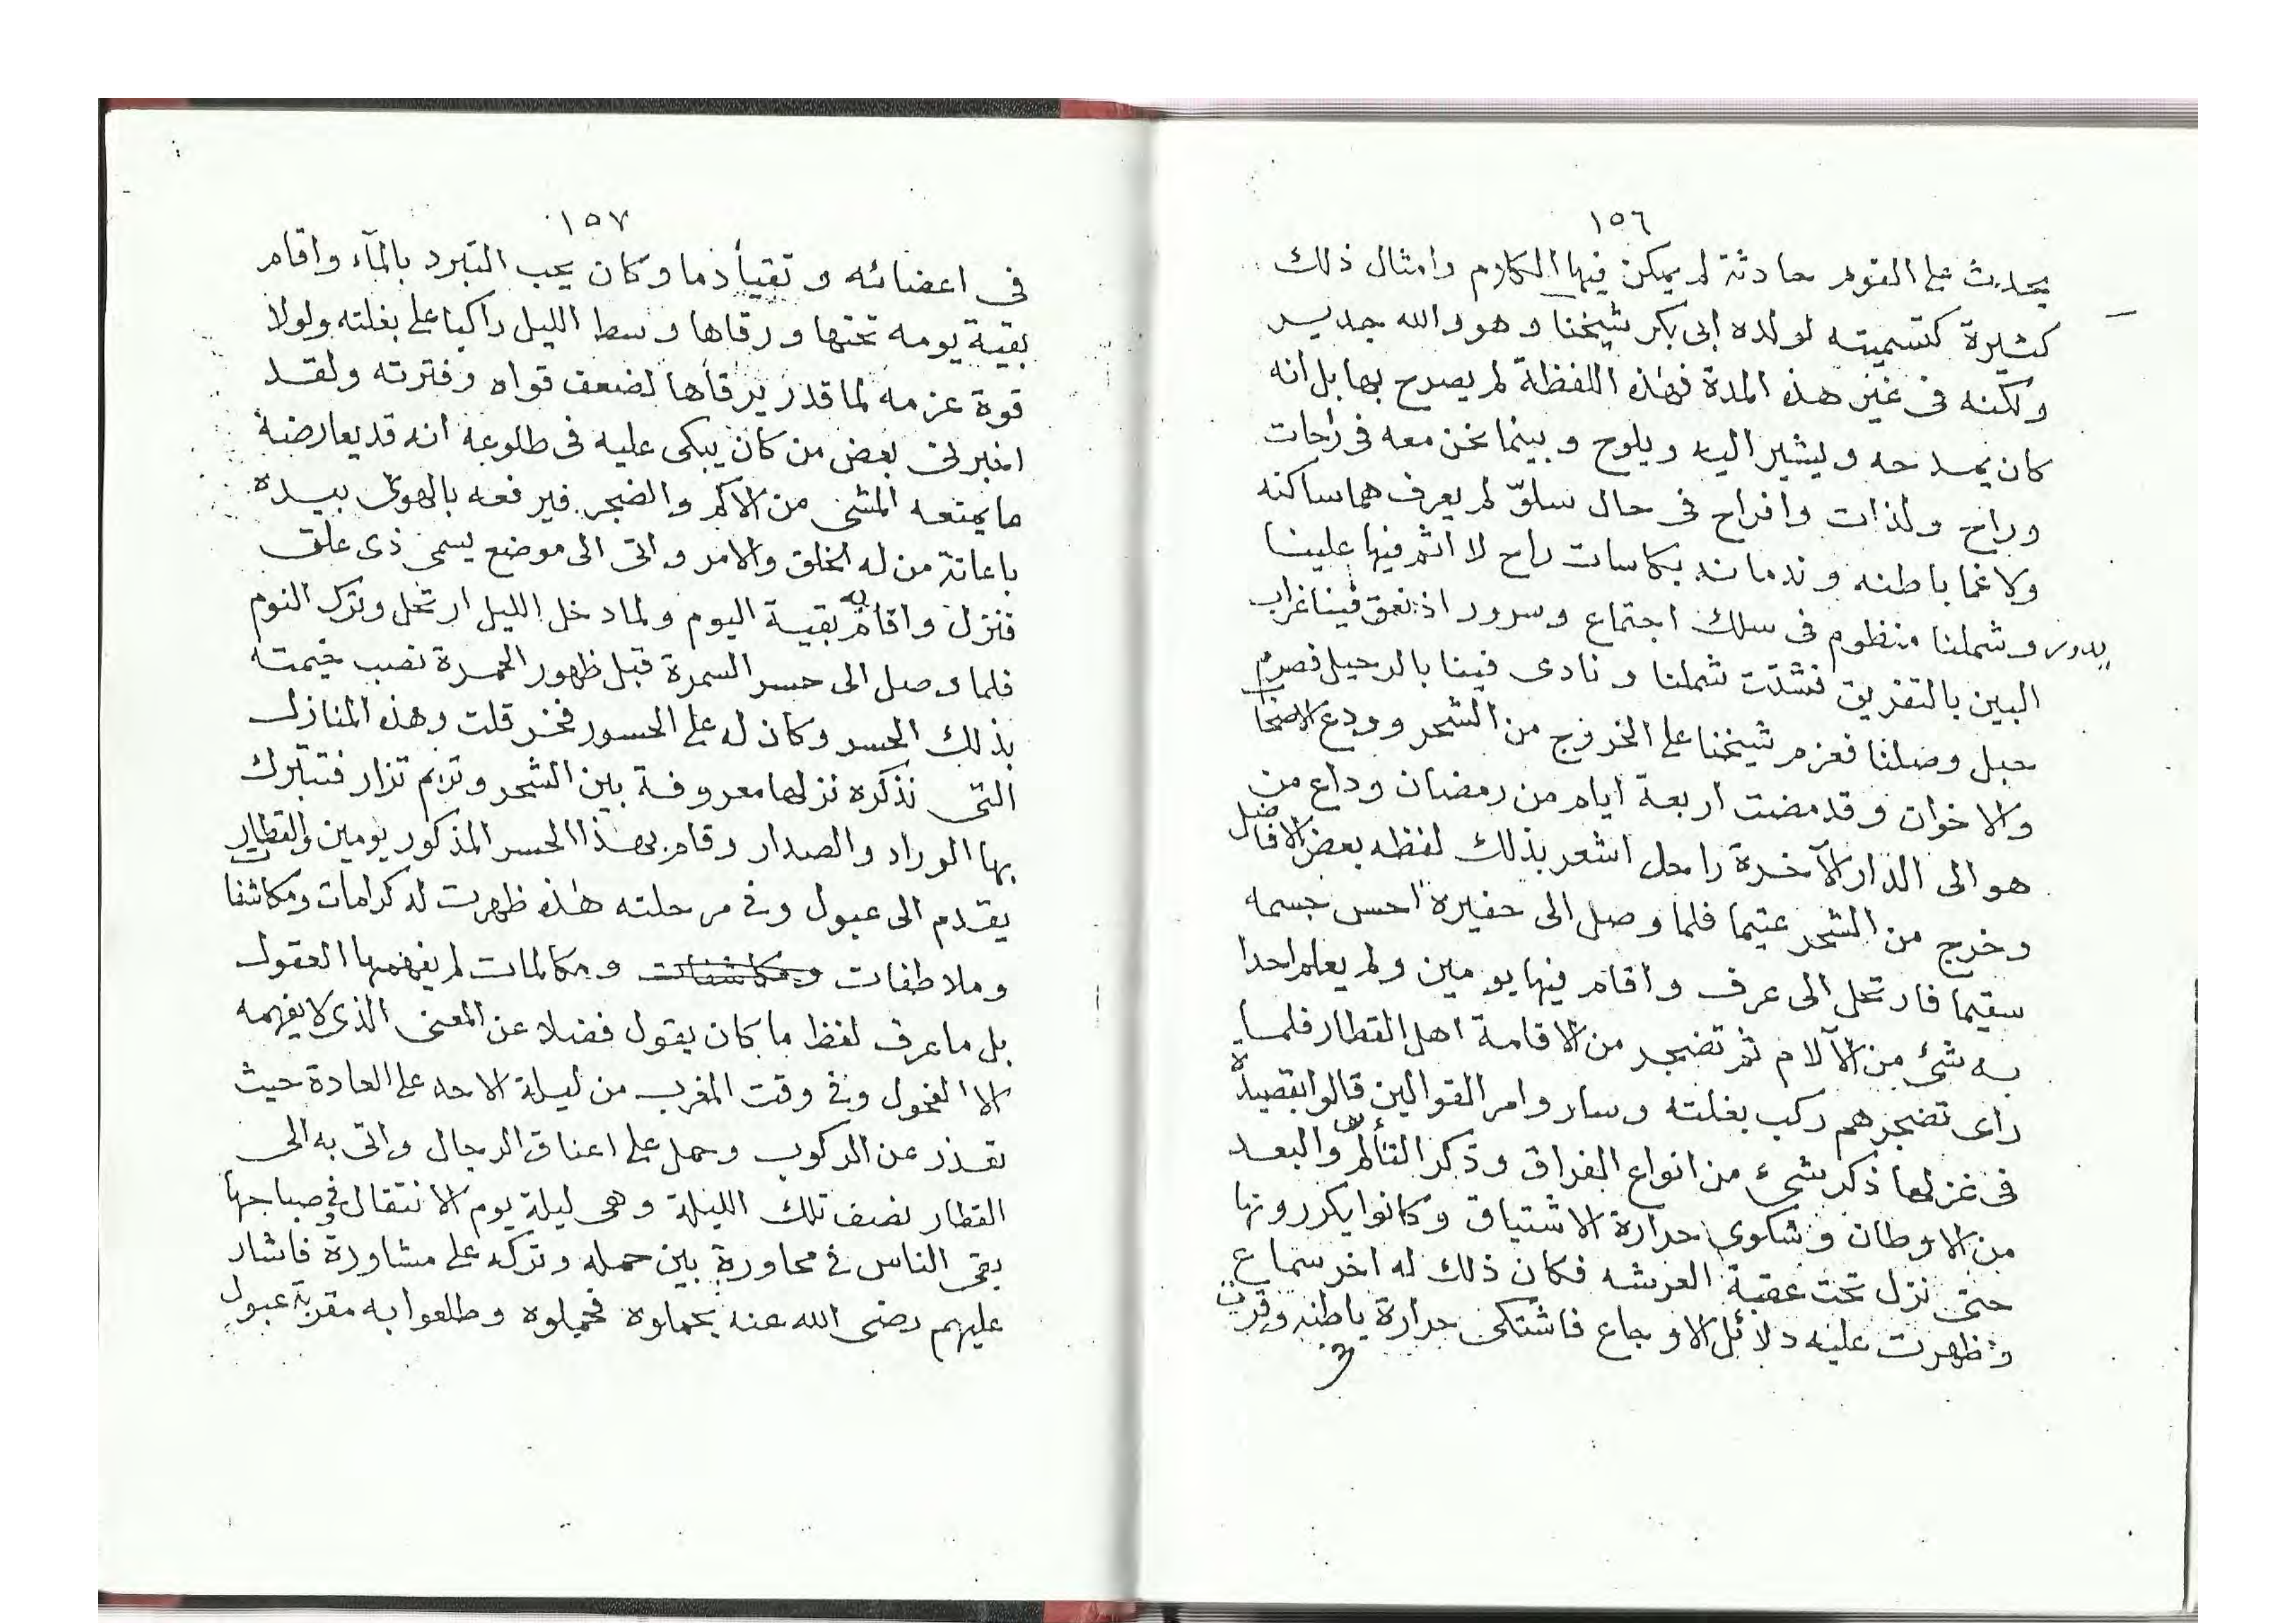 ١٥٦
يحدث على القوم حادثة لم يمكن فيها الكلام وامثال ذلك
كثيرة كتسميته لولده ابى بكر شيخنا وهو والله جدير
ولكنه فى غير هذه المدة فهذه اللفظة لم يصرح بها بل انه
كان يمدحه ويشير اليه ويلوح وبينما نحن معه فى راحات
وراح ولذات وافراح فى حال سلوّ لم يعرف هما ساكنه
ولا غما باطنه وندمانه بكاسات راح لا اثم فيها علينا
يدور وشملنا منظوم فى سلك اجتماع وسرور اذ نعق فينا غراب
البين بالتفريق فشتت شملنا ونادى فينا بالرحيل فصرم
حبل وصلنا فعزم شيخنا على الخروج من الشحر وودع الاصحاب
والاخوان وقد مضت اربعة ايام من رمضان وداع من
هو الى الدار الآخرة راحل اشعر بذلك لفظه بعض الافاضل
وخرج من الشحر عتيما فلما وصل الى حفيره احس جسمه
سقيما فارتحل الى عرف واقام فيها يومين ولم يعلم احدا
به شئ من الآلام ثم تضجر من الاقامة اهل القطار فلما
راى تضجرهم ركب بغلته وسار وامر القوالين قالوا بقصيدة
فى غزلها ذكر شىء من انواع الفراق وذكر التألم والبعد
من الاوطان وشكوى حرارة الاشتياق وكانوا يكررونها
حتى نزل تحت عقبة العرشه فكان ذلك له اخر سماع
وظهرت عليه دلائل الاوجاع فاشتكى حرارة باطنه وفترت
١٥٧
فى اعضائه وتقيأ دما وكان يحب التبرد بالمآء واقام
بقية يومه تحتها ورقاها وسط الليل راكبا على بغلته ولولا
قوة عزمه لما قدر يرقاها لضعف قواه وفترته ولقد
اخبرنى بعض من كان يبكى عليه فى طلوعه انه قد يعارضه
ما يمنعه المشى من الاكم والضجر فيرفعه بالهوى بيده
باعانة من له الخلق والامر واتى الى موضع يسمى ذى علق
فنزل واقام به بقية اليوم ولما دخل الليل ارتحل وترك النوم
فلما وصل الى حسر السمرة قبل ظهور الحمرة نصب خيمته
بذلك الحسر وكان له على الحسور فخر قلت وهذه المنازل
التى نذكره نزلها معروفة بين الشحر وتريم تزار فتتبرك
بها الوراد والصدار وقام بهذا الحسر المذكور يومين والقطار
يقدم الى عبول وفى مرحلته هذه ظهرت له كرامات ومكاشفات
وملاطفات ومكاشفات ومكالمات لم يفهمها العقول
بل ما عرف لفظ ما كان يقول فضلا عن المعنى الذى لا يفهمه
الا الفحول وفى وقت المغرب من ليلة الاحد على العادة حيث
تعذر عن الركوب وحمل على اعناق الرجال واتى به الى
القطار نصف تلك الليلة وهى ليلة يوم الانتقال وفى صباحها
بقى الناس فى محاورة بين حمله وتركه على مشاورة فاشار
عليهم رضى الله عنه يحملوه فحملوه وطلعوا به مقربة عبول